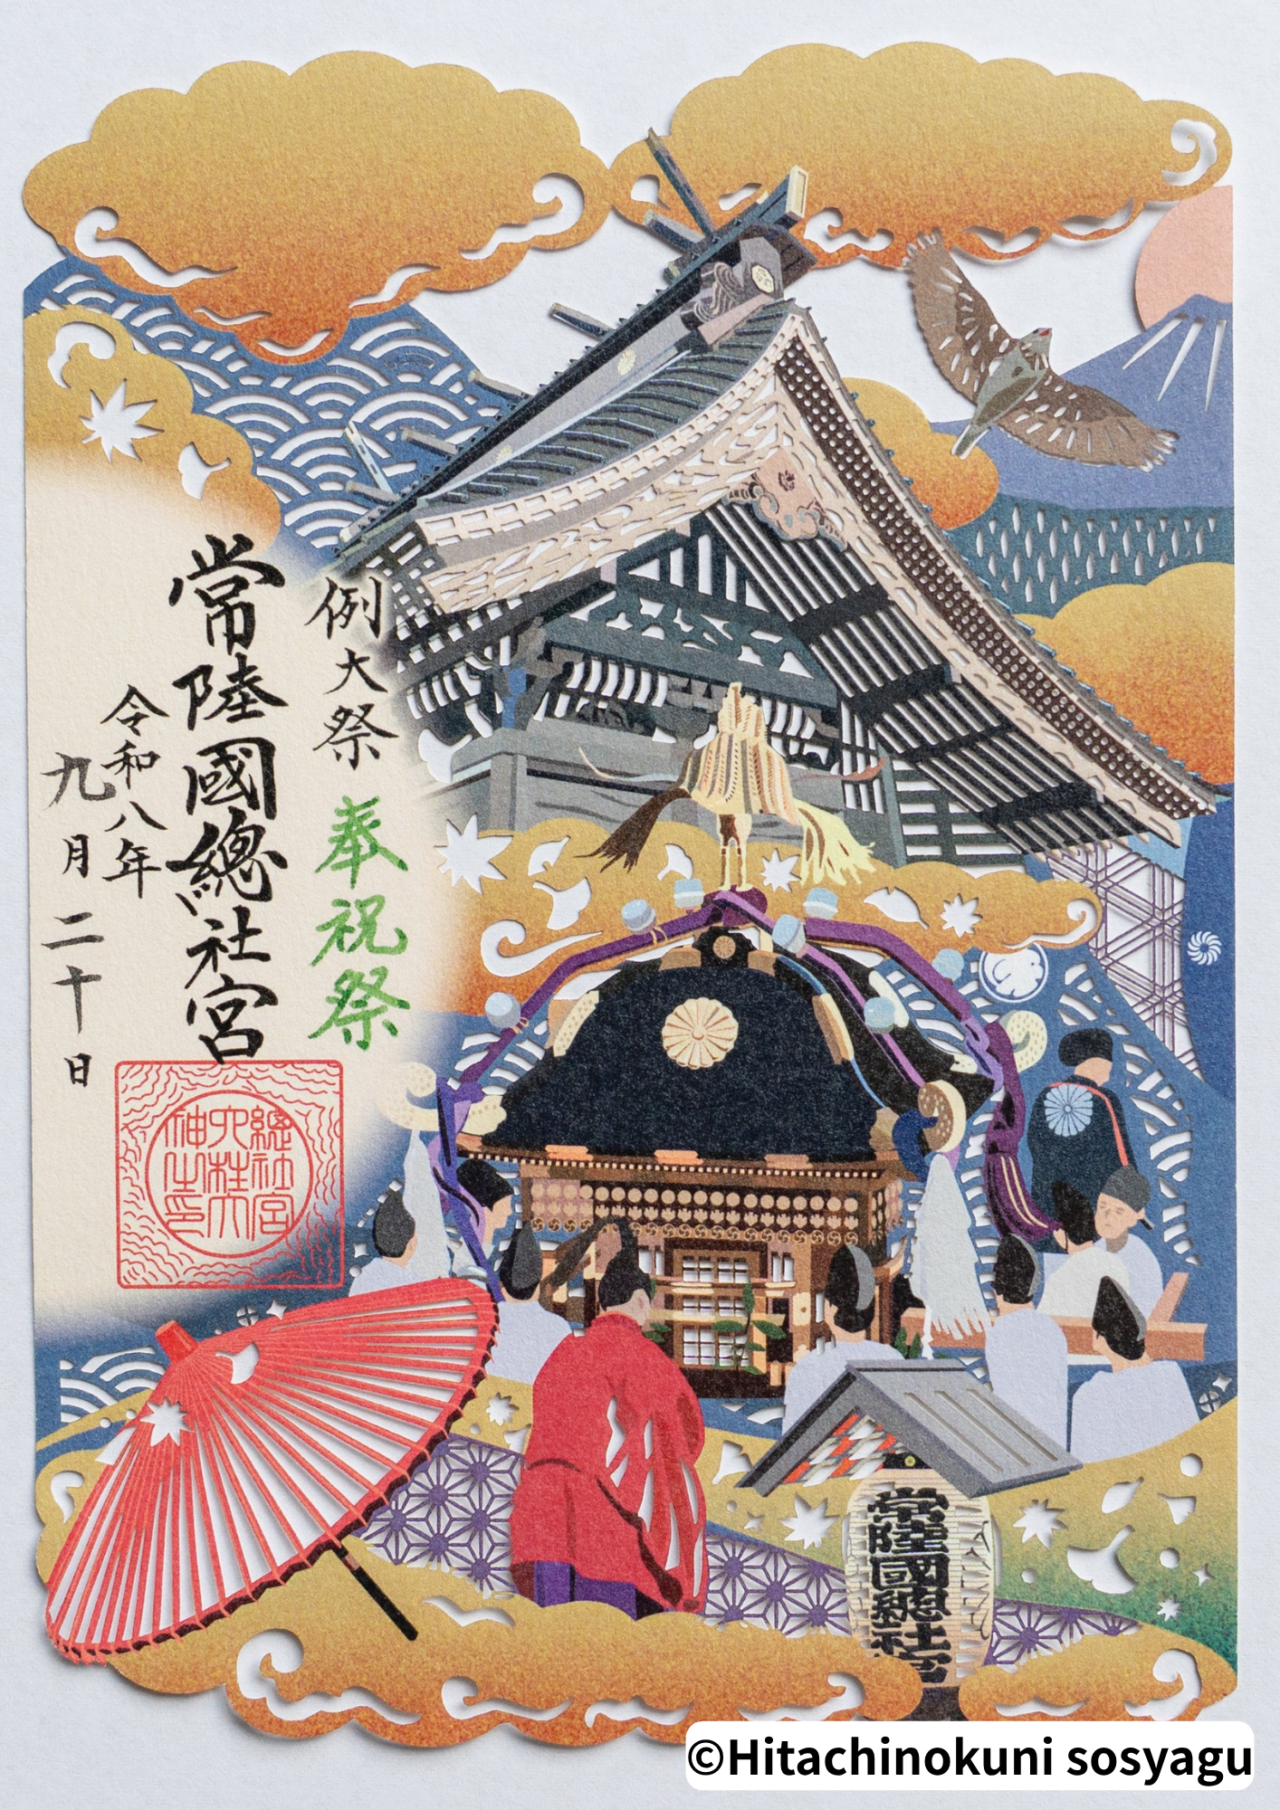 例大祭 奉祝祭
常陸國總社宮
令和八年
九月二十日
總社宮
六柱大
神之印
常陸國總社宮
©Hitachinokuni sosyagu